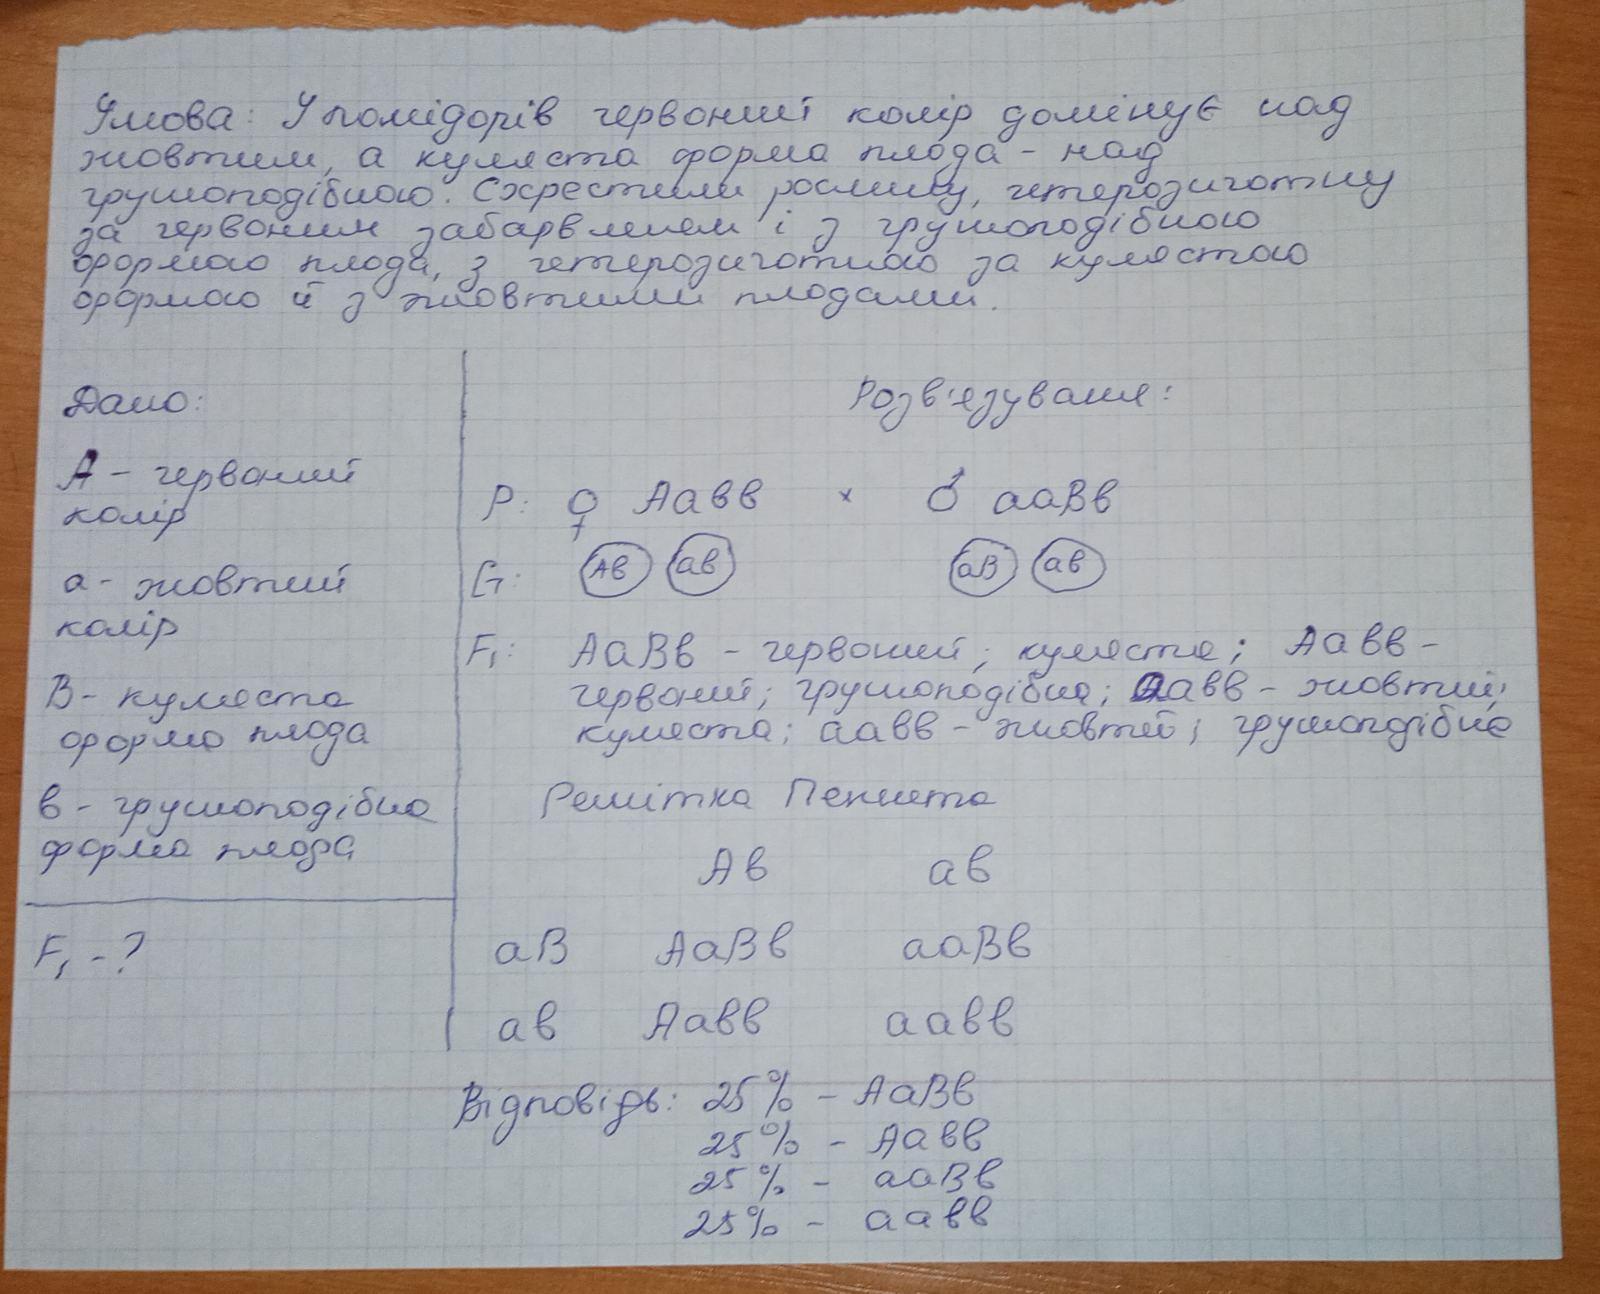 Умова: У помідорів червоний колір домінує над
жовтим, а куляста форма плода - над
грушоподібною. Схрестили рослину, гетерозиготну
за червоним забарвленням і з грушоподібною
формою плода, з гетерозиготною за кулястою
формою й з жовтими плодами.
Дано:
А - червоний
колір
а - жовтий
колір
В - куляста
форма плода
в - грушоподібна
форма плода
F₁ - ?
Розв'язування:
P: ♀ Аавв × ♂ ааВв
G: Ав ав аВ ав
F₁: АаВв - червоний; куляста; Аавв -
червоний; грушоподібна; аавв - жовтий;
куляста; аавв - жовтий; грушоподібна
Решітка Пеннета
Ав ав
аВ АаВв ааВв
ав Аавв аавв
Відповідь: 25% - АаВв
25% - Аавв
25% - ааВв
25% - аавв